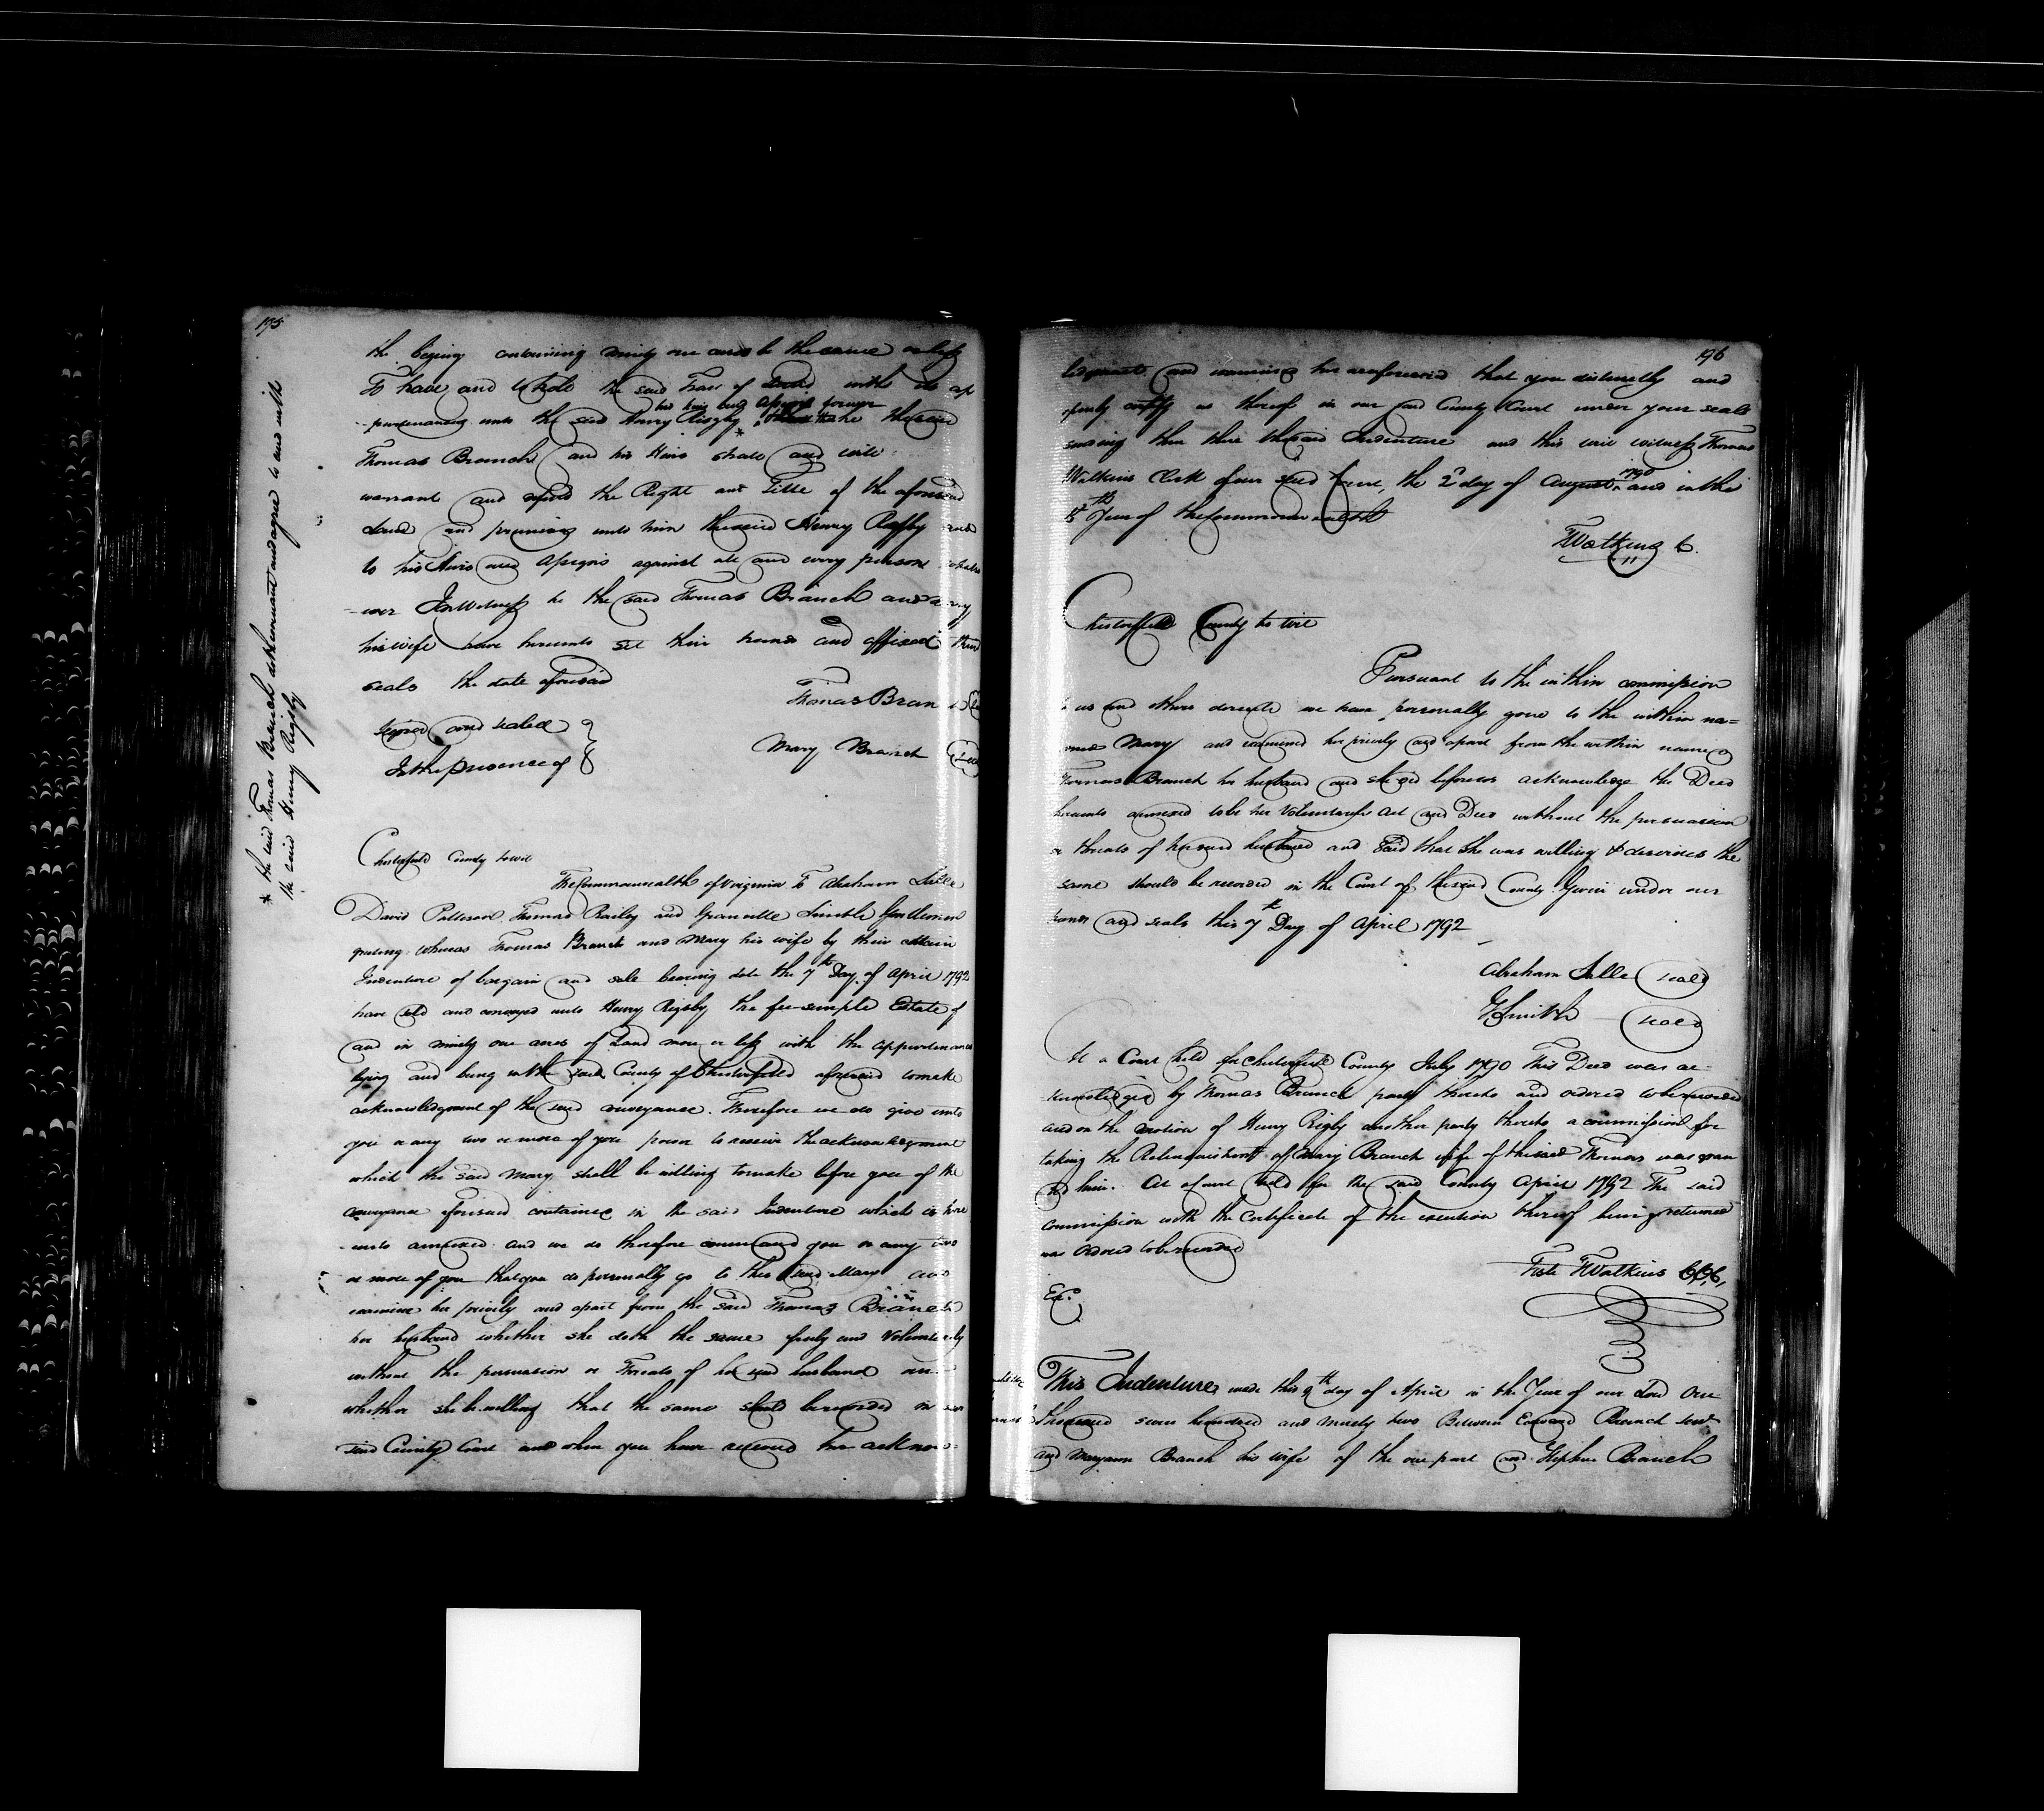 195
the begining containing ninety one acres be the same or less
To have and to hold the said Tract of Land with its ap
purtenances unto the said Henry Rigsby his heirs and Assigns forever * the said
Thomas Branch and his Heirs shall and will
warrant and defend the Right and Title of the aforesaid
Land and premises unto him the said Henry Rigsby and
to his Heirs and Assigns against all and every person whatso
ever In Witness he the said Thomas Branch and Mary
his wife have hereunto set their hands and affixed their
seals the date aforesaid
Thomas Branch
Signed and sealed
Mary Branch Seal
In the presence of
* the said Thomas Branch doth covenant and agree to and with
the said Henry Rigsby
Chesterfield County to wit
The Commonwealth of Virginia To Abraham Salle
David Patteson Thomas Railey and Granville Smith Gentlemen
greeting. Whereas Thomas Branch and Mary his wife by their certain
Indenture of bargain and sale bearing date the 7th Day of April 1792
have sold and conveyed unto Henry Rigsby the fee-simple Estate of
and in ninety one acres of Land more or less with the appurtenances
lying and being in the said County of Chesterfield aforesaid to make
acknowledgment of the said conveyance. Therefore we do give unto
you or any two or more of you power to receive the acknowledgment
which the said Mary shall be willing to make before you of the
conveyance aforesaid contained in the said Indenture which is here
-unto annexed and we do therefore command you or any two
or more of you that you do personally go to the said Mary and
examine her privily and apart from the said Thomas Branch
her husband whether she doth the same freely and Voluntarily
without the persuasion or Threats of her said husband and
whether she be willing that the same should be recorded in our
said County Court and when you have received her acknow-
196
ledgment and examined her as aforesaid that you distinctly and
openly certify us thereof in our said County Court under your seals
sending then there the said Indenture and this writ witness Thomas
Watkins Clerk of our said Court, the 2d day of August 1790 and in the
15th Year of the Commonwealth
T Watkins C.
Chesterfield County to wit
Pursuant to the within commission
to us and others directed we have personally gone to the within na=
med Mary and examined her privily and apart from the within named
Thomas Branch her husband and she did before us acknowledge the Deed
hereunto annexed to be her Voluntary act and Deed without the persuasion
or threats of her said husband and said that She was willing & desirous the
same should be recorded in the Court of the said County Given under our
hands and seals this 7th Day of April 1792
Abraham Salle seal
G Smith seal
At a Court held for Chesterfield County July 1790 This Deed was ac-
knowledged by Thomas Branch party thereto and ordered to be recorded
and on the motion of Henry Rigsby another party thereto a commission for
taking the Relinquishment of Mary Branch wife of the said Thomas was gran
ted him. At a Court held for the said County April 1792 The said
commission with the Certificate of the execution thereof being returned
was ordered to be recorded
Teste T Watkins C,C,C,
Ex.
This Indenture made this 9th day of April in the Year of our Lord One
thousand seven hundred and ninety two Between Edward Branch senr
and Maryann Branch his wife of the one part and Stephen Branch